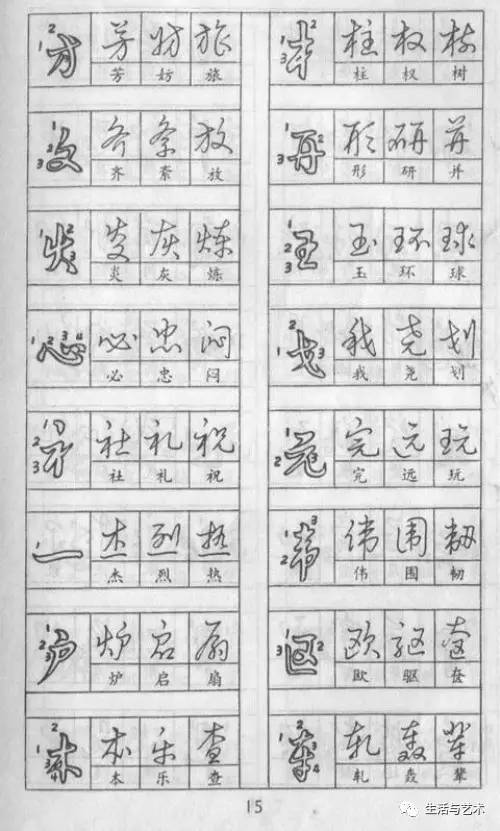 方 芳 妨 旅
芳 妨 旅
文 齐 放
齐 放
火 炎 灰 炼
炎 灰 炼
心 必 忠 闷
必 忠 闷
礻 社 礼 祝
社 礼 祝
杰 烈 热
杰 烈 热
户 炉 启 扇
炉 启 扇
木 本 乐 查
本 乐 查
木 柱 权 树
柱 权 树
开 形 研 并
形 研 并
王 玉 环 球
玉 环 球
戈 我 尧 划
我 尧 划
元 完 远 玩
完 远 玩
韦 伟 围 韧
伟 围 韧
区 欧 驱 奁
欧 驱 奁
车 轧 轰 辈
轧 轰 辈
15
生活与艺术